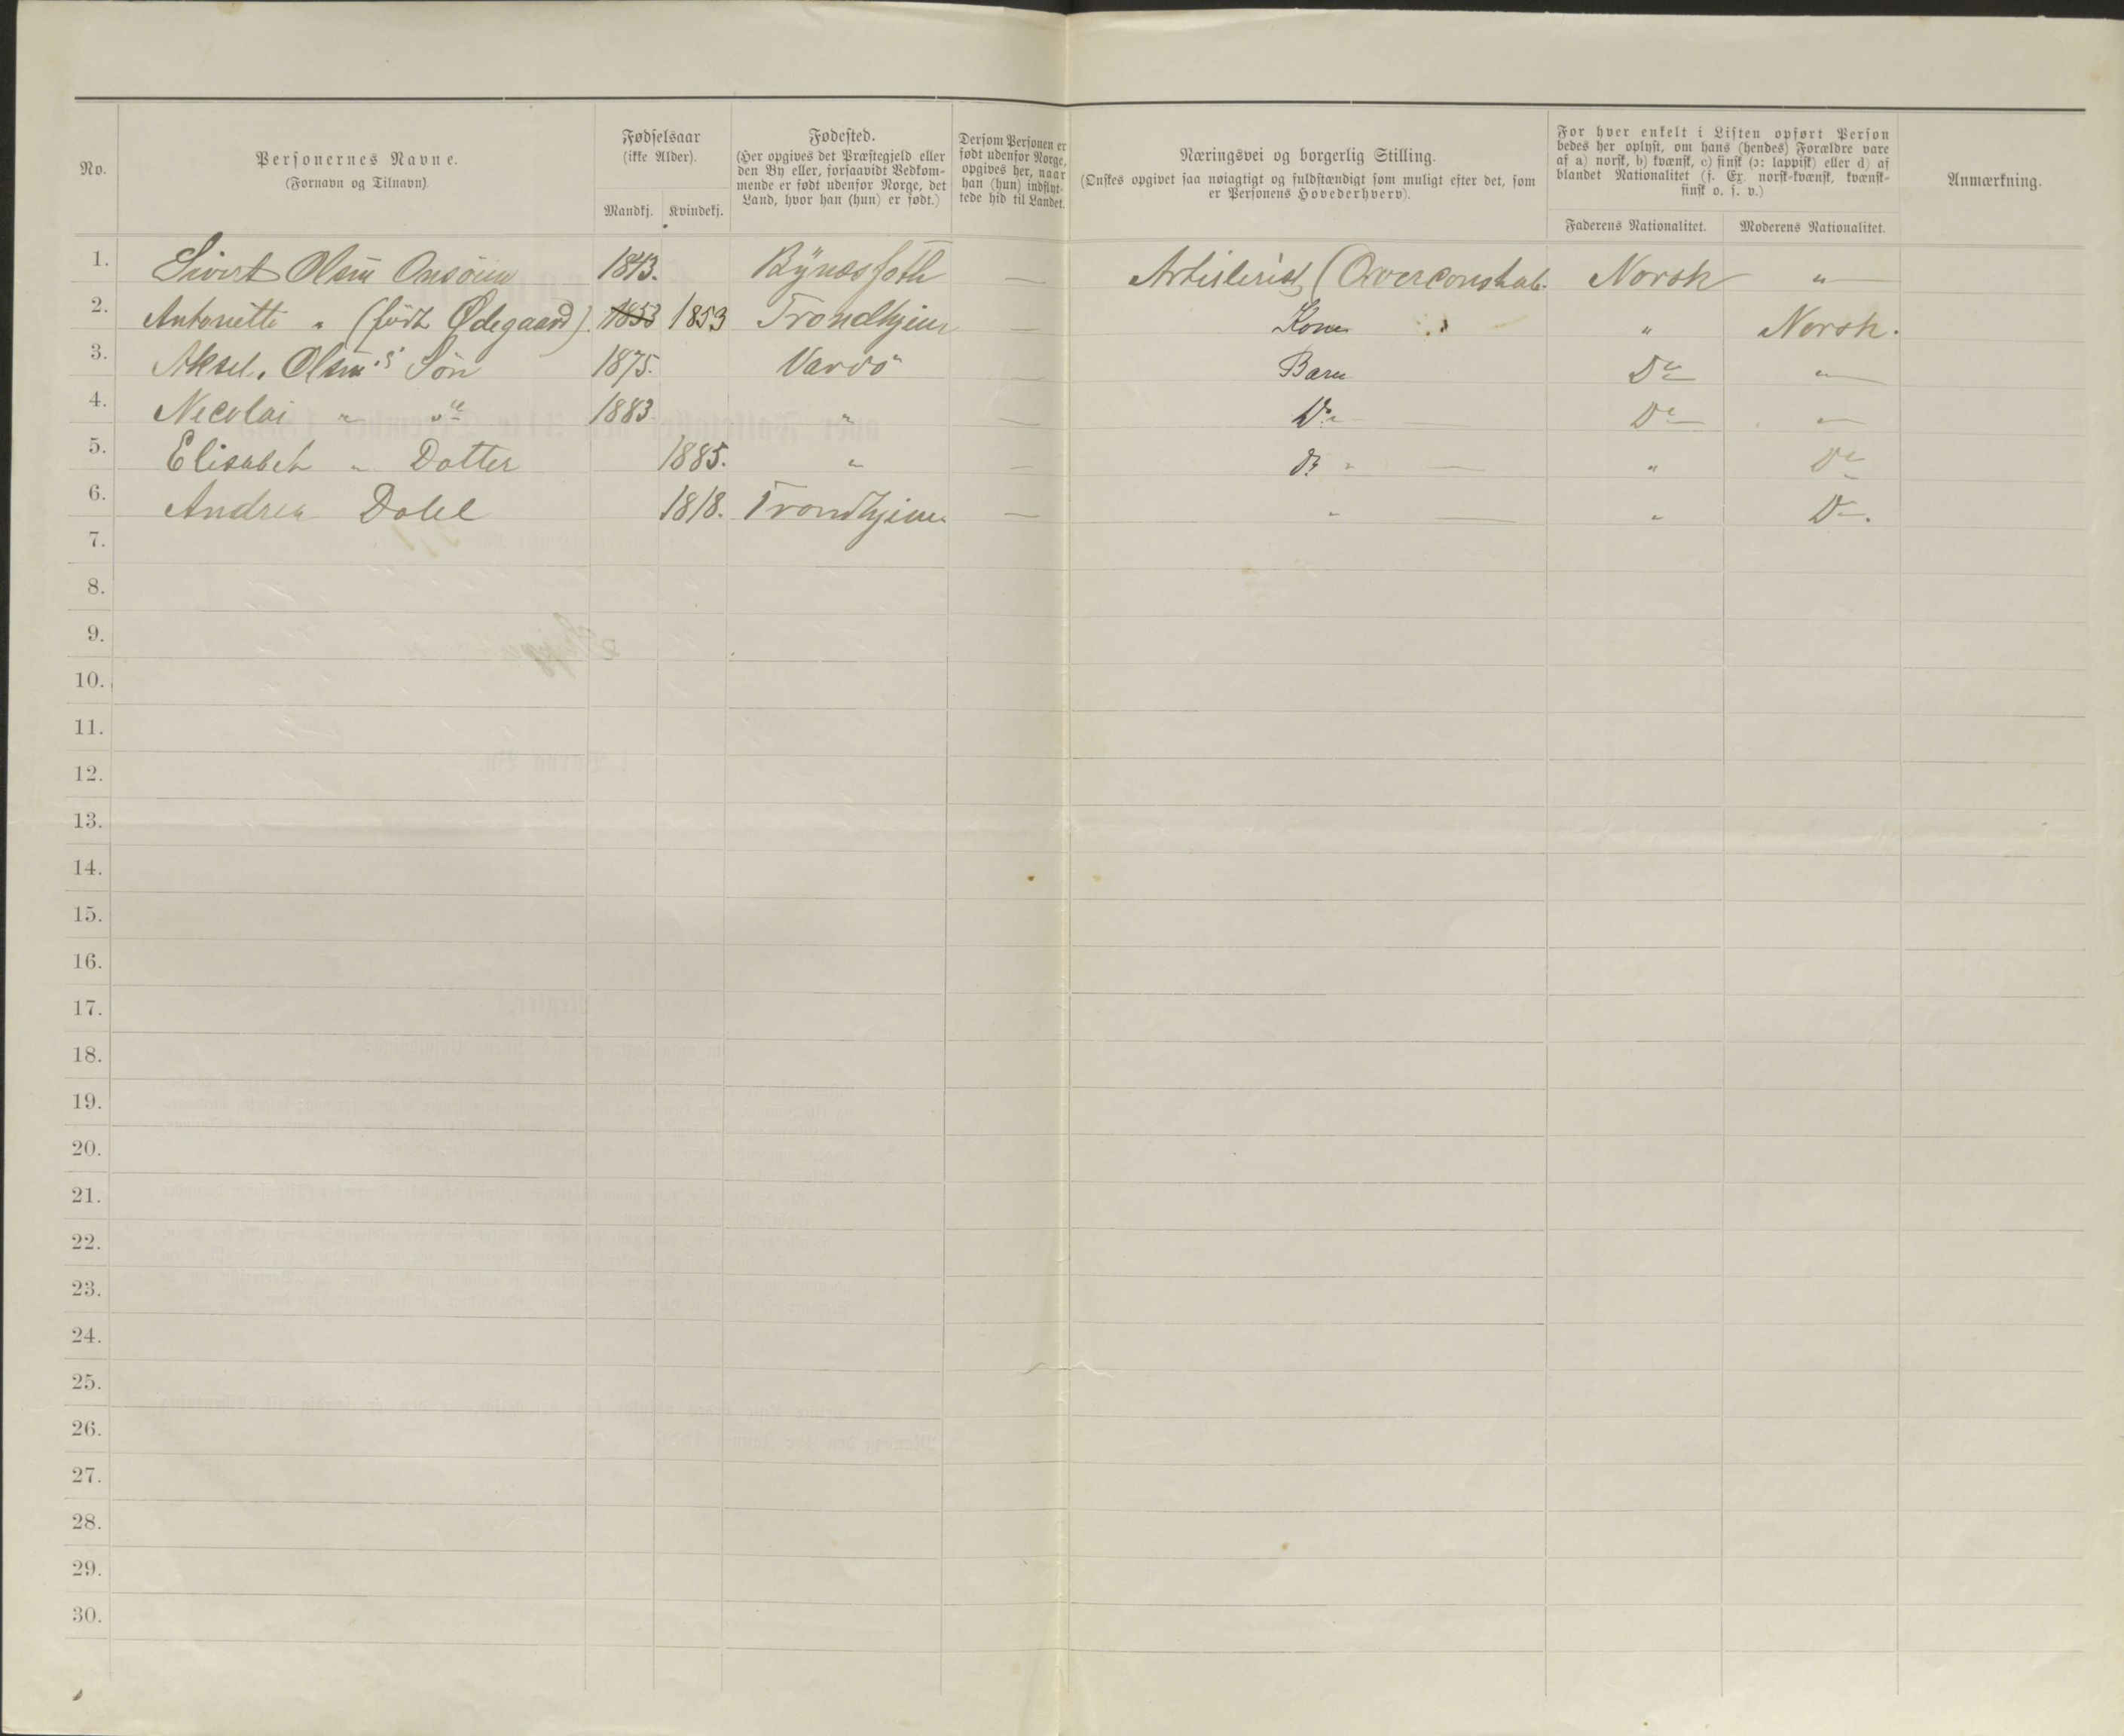 No.
Personernes Navne.
(Fornavn og Tilnavn)
Fødselsaar
(ikke Alder).
Mandkj. Kvindekj.
Fødested.
(Her opgives det Præstegjeld eller
den By eller, forsaavidt Vedkom-
mende er født udenfor Norge, det
Land, hvor han (hun) er født.)
Dersom Personen er
født udenfor Norge,
opgives her, naar
han (hun) indflyt-
tede hid til Landet.
Næringsvei og borgerlig Stilling.
(Ønskes opgivet saa nøiagtigt og fuldstændigt som muligt efter det, som
er Personens Hovederhverv).
For hver enkelt i Listen opført Person
bedes her oplyst, om hans (hendes) Forældre vare
af a) norsk, b) kvænsk, c) finsk (ɔ: lappisk) eller d) af
blandet Nationalitet (f. Ex. norsk-kvænsk, kvænsk-
finsk o. s. v.)
Faderens Nationalitet. Moderens Nationalitet.
Anmærkning.
1. Sivert Olsen 1843. — Artilerist (Overconstab. Norsk "
2. Antonette " (född Ødegaard). 1853 1853 Trondhjem — Kone " Norsk.
3. Aksel. Olsen's Sön 1875. Vardö — Barn Do "
4. Necolai " do 1883 " — Do Do "
5. Elisabet " Dotter 1885. " — Do " Do
6. Andrea Dahl 1818. Trondhjem — " " Do.
7.
8.
9.
10.
11.
12.
13.
14.
15.
16.
17.
18.
19.
20.
21.
22.
23.
24.
25.
26.
27.
28.
29.
30.